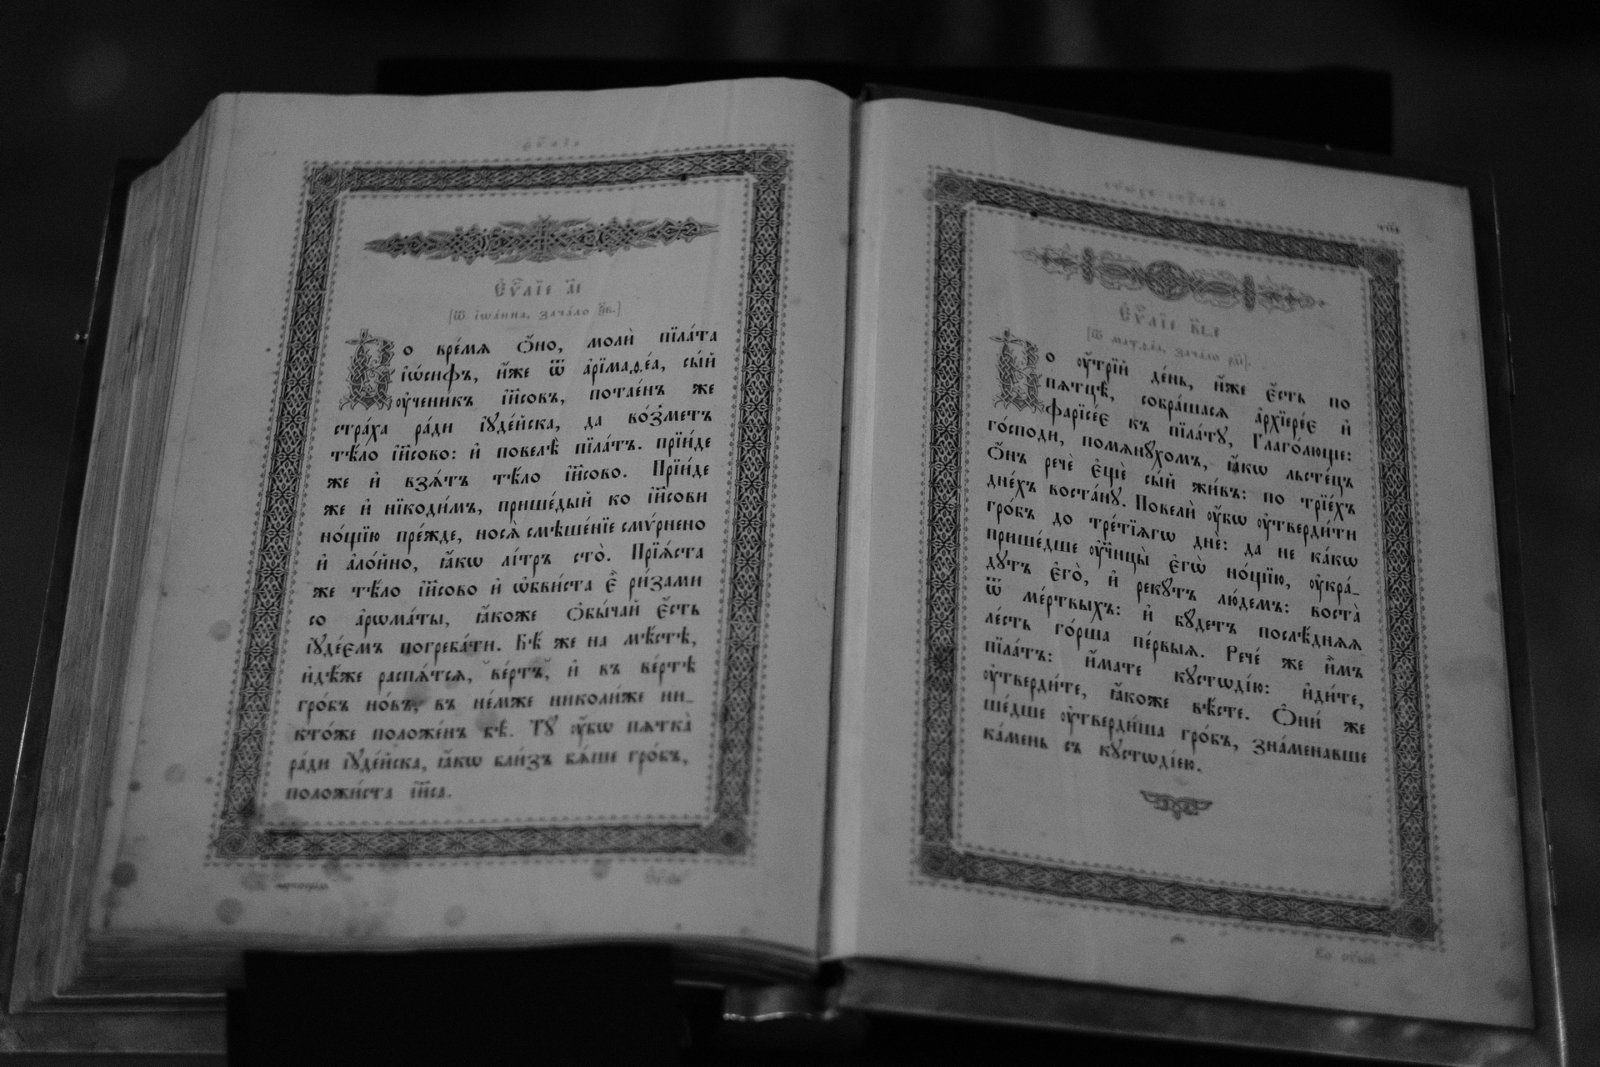 Є҆ѵⷢ҇лїе а҃і
[Ѿ і҆ѡа́нна, зача́ло ѯ҃в.]
Во вре́мѧ ѻ҆́но, молѝ пїла́та
і҆ѡ́сифъ, и҆́же ѿ а҆рїмаѳе́а, сы́й
ᲂу҆чени́къ і҆и҃совъ, потае́нъ же
стра́ха ра́ди і҆ꙋде́йска, да во́зметъ
тѣ́ло і҆и҃сово: и҆ повелѣ̀ пїла́тъ. прїи́де
же и҆ взѧ́тъ тѣ́ло і҆и҃сово. Прїи́де
же и҆ нїкоди́мъ, прише́дый ко і҆и҃сови
но́щїю пре́жде, носѧ̀ смѣше́нїе смѵ́рнено
и҆ а҆ло́йно, ꙗ҆́кѡ лі́тръ сто̀. Прїѧ́ста
же тѣ́ло і҆и҃сово и҆ ѡ҆бви́ста є҆̀ ри́зами
со а҆рѡма́ты, ꙗ҆́коже ѻ҆бы́чай є҆́сть
і҆ꙋде́ємъ погреба́ти. Бѣ́ же на мѣ́стѣ,
и҆дѣ́же распѧ́тсѧ, ве́ртъ, и҆ въ ве́ртѣ
гро́бъ но́въ, въ не́мже николи́же ни_
кто́же положе́нъ бѣ̀. Тꙋ̀ ᲂу҆̀бѡ пѧтка̀
ра́ди і҆ꙋде́йска, ꙗ҆́кѡ бли́зъ бѧ́ше гро́бъ,
положи́ста і҆и҃са.
Є҆ѵⷢ҇лїе в҃і_е
[Ѿ матѳе́а, зача́ло рд҃і].
Во ᲂу҆́трїй де́нь, и҆́же є҆́сть по
пѧтцѣ̀, собра́шасѧ а҆рхїере́є и҆
фарїсе́є къ пїла́тꙋ, Глаго́люще:
го́споди, помѧнꙋ́хомъ, ꙗ҆́кѡ льсте́цъ
ѻ҆́нъ речѐ є҆щѐ сы́й жи́въ: по трїе́хъ
дне́хъ воста́нꙋ. Повелѝ ᲂу҆̀бѡ ᲂу҆тверди́ти
гро́бъ до тре́тїѧгѡ днѐ: да не ка́кѡ
прише́дше ᲂу҆чн҃цы̀ є҆гѡ̀ но́щїю, ᲂу҆кра́_
дꙋтъ є҆го̀, и҆ рекꙋ́тъ лю́демъ: воста̀
ѿ ме́ртвыхъ: и҆ бꙋ́детъ послѣ́днѧѧ
ле́сть го́рша пе́рвыѧ. Рече́ же и҆̀мъ
пїла́тъ: и҆́мате кꙋстѡді́ю: и҆ди́те,
ᲂу҆тверди́те, ꙗ҆́коже вѣ́сте. Ѻ҆ни́ же
ше́дше ᲂу҆тверди́ша гро́бъ, зна́менавше
ка́мень съ кꙋстѡді́ею.